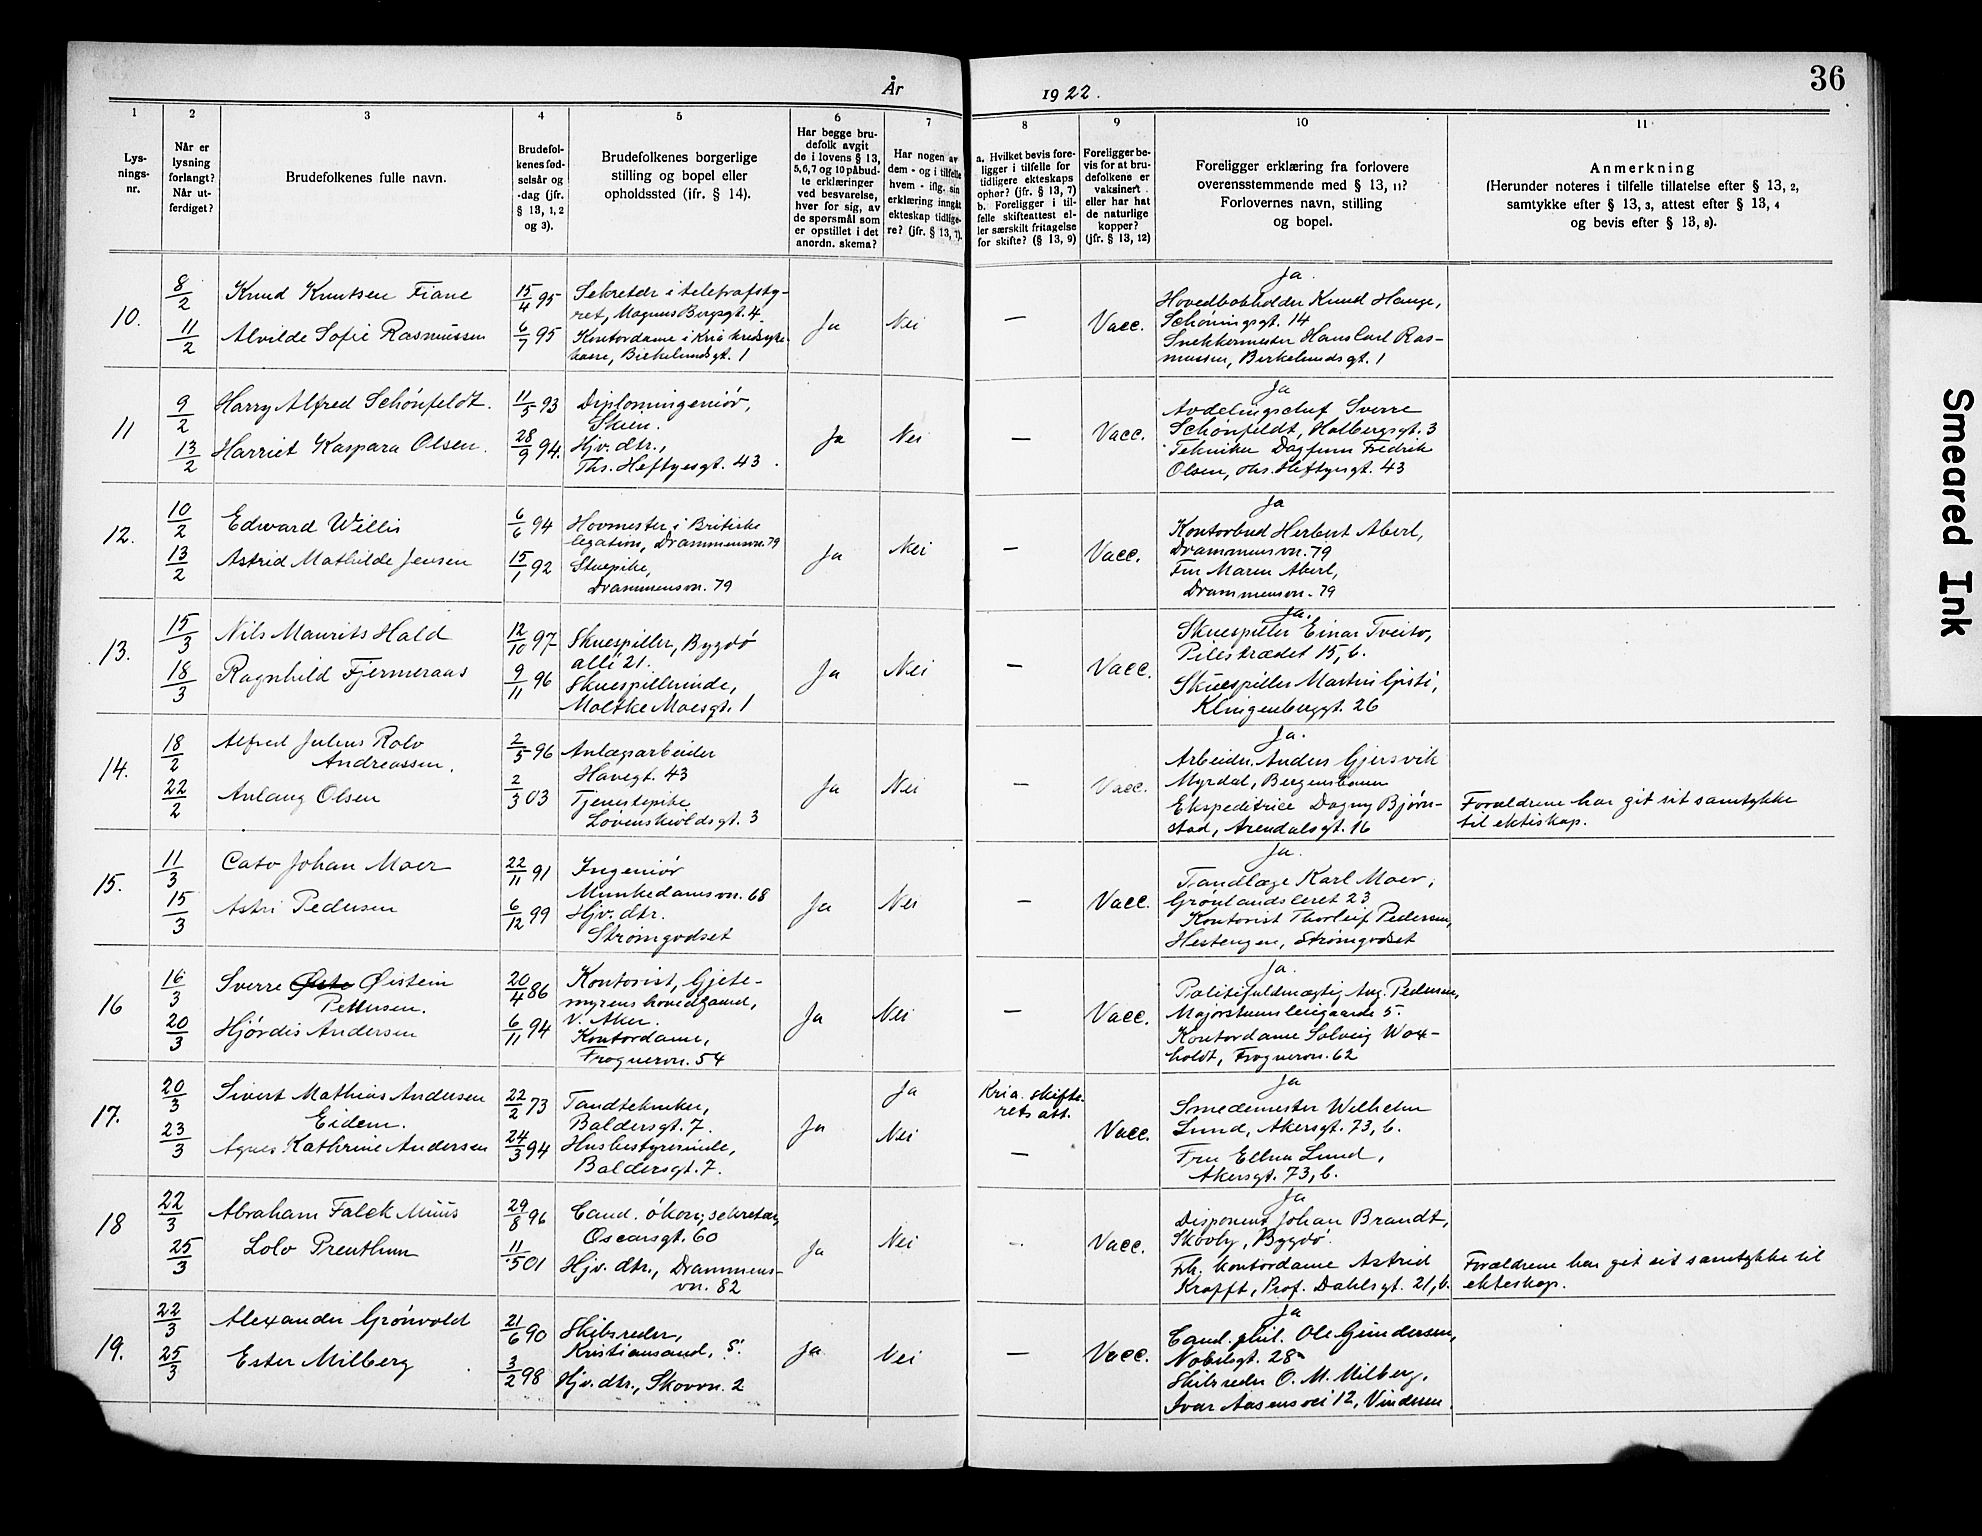 År
1922.
36
1
2
3
4
5
6
7
8
9
10
11
Lys-
nings-
nr.
Når er
lysning
forlangt?
Når ut-
ferdiget?
Brudefolkenes fulle navn.
Brudefol-
kenes fød-
selsår og
-dag (jfr.
§ 13, 1, 2
og 3).
Brudefolkenes borgerlige
stilling og bopel eller
opholdssted (jfr. § 14).
Har begge bru-
defolk avgit
de i lovens § 13,
5, 6, 7 og 10 påbud-
te erklæringer
ved besvarelse,
hver for sig, av
de spørsmål som
er opstillet i det
anordn. skema?
Har nogen av
dem - og i tilfelle
hvem - iflg. sin
erklæring inngåt
ekteskap tidlige-
re? (jfr. § 13, 7).
a. Hvilket bevis fore-
ligger i tilfelle for
tidligere ekteskaps
ophør? (jfr. § 13, 7)
b. Foreligger i til-
felle skifteattest el-
ler særskilt fritagelse
for skifte? (§ 13, 9)
Foreligger be-
vis for at bru-
defolkene er
vaksinert
eller har hat
de naturlige
kopper?
(jfr. § 13, 12)
Foreligger erklæring fra forlovere
overensstemmende med § 13, 11?
Forlovernes navn, stilling
og bopel.
Anmerkning
(Herunder noteres i tilfelle tillatelse efter § 13, 2,
samtykke efter § 13, 3, attest efter § 13, 4
og bevis efter § 13, 8).
10.
8/2
11/2
Knud Knutsen Fiane
Alvilde Sofie Rasmussen
15/4 95
6/7 95
Sekretær i telegrafsty-
ret, Magnus Bergsgt. 4
Kontordame i Kria kredssyke-
kasse, Birkelundsgt. 1
Ja
Nei
—
Vacc.
Ja.
Hovedbokholder Knud Hauge,
Schøningsgt. 14
Snekkermester Hans Carl Ras-
mussen, Birkelundsgt. 1
11
9/2
13/2
Harry Alfred Schönfeldt.
Harriet Kaspara Olsen.
11/5 93
28/9 94.
Diplomingeniør,
Skien.
Hjv. dtr.,
Ths. Heftyesgt. 43.
Ja
Nei
—
Vacc.
Ja
Avdelingschef Sverre
Schönfeldt, Holbergsgt. 3
Tekniker Dagfinn Fredrik
Olsen, Ths. Heftyesgt. 43
12.
10/2
13/2
Edward Willis
Astrid Mathilde Jensen
6/6 94
15/1 92
Hovmester i Britiske
legation, Drammensvn. 79
Stuepike,
Drammensvn. 79
Ja
Nei
—
Vacc.
Ja
Kontorbud Herbert Aberl,
Drammensvn. 79
Fru Maren Aberl,
Drammensvn. 79
13.
15/3
18/3
Nils Maurits Hald
Ragnhild Fjermeraas
12/10 97
9/11 96
Skuespiller, Bygdø
allé 21.
Skuespillerinde,
Moltke Moesgt. 1
Ja
Nei
—
Vacc.
Ja.
Skuespiller Einar Tveito,
Pilestrædet 15, b.
Skuespiller Martin Gisti,
Klingenberggt. 26
14.
18/2
22/2
Alfred Julius Rolv
Andreassen.
Aslaug Olsen
2/5 96
2/3 03
Anlægsarbeider
Havegt. 43
Tjenestepike
Løvenskioldsgt. 3
Ja
Nei
—
Vacc.
Ja.
Arbeider Anders Gjersvik
Myrdal, Bergensbanen
Ekspeditrice Dagny Bjørn-
stad, Arendalsgt. 16
Forældrene har git sit samtykke
til ekteskap.
15.
11/3
15/3
Cato Johan Moer
Astri Pedersen
22/11 91
6/12 99
Ingeniør
Munkedamsvn. 68
Hjv. dtr.
Strømgodset
Ja
Nei
—
Vacc.
Ja.
Tandlæge Karl Moer,
Grønlandsleret 23
Kontorist Thorleif Pedersen,
Hestengen, Strømgodset
16
16/3
20/3
Sverre Øiste Øistein
Pettersen.
Hjørdis Andersen
20/4 86
6/11 94
Kontorist, Gjete-
myrens hovedgaard,
V. Aker.
Kontordame,
Frognervn. 54
Ja
Nei
—
Vacc.
Ja.
Politifuldmægtig Aug. Pedersen,
Majorstuens leiegaard 5.
Kontordame Solveig Wax-
holdt, Frognervn. 62
17.
20/3
23/3
Sivert Mathias Andersen
Eidem.
Agnes Kathrine Andersen
22/2 73
24/3 94
Tandtekniker,
Baldersgt. 7.
Husbestyrerinde,
Baldersgt. 7.
Ja
Ja
Nei
Kria. skifte-
rets att.
—
Vacc.
Ja
Smedemester Wilhelm
Lund, Akersgt. 73, b.
Fru Ellen Lund,
Akersgt. 73, b.
18
22/3
25/3
Abraham Falck Muus
Lolo Prenthun
29/8 96
11/5 01
Cand. økon, sekretær,
Oscarsgt. 60
Hjv. dtr., Drammens-
vn. 82
Ja
Nei
—
Vacc.
Ja
Disponent Johan Brandt,
Skovly, Bygdø.
Frk. kontordame Astrid
Krafft, Prof. Dahlsgt. 21, b.
Forældrene har git sit samtykke til
ekteskap.
19.
22/3
25/3
Alexander Grønvold
Ester Milberg
21/6 90
3/2 98
Skibsreder,
Kristiansand, S.
Hjv. dtr., Skovvn. 2
Ja
Nei
—
Vacc.
Ja
Cand. phil. Ole Gundersen,
Nobelsgt. 28
Skibsreder O. M. Milberg,
Ivar Aasens vei 12, Vinderen.
Smeared Ink